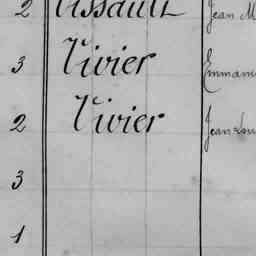 2 Assault Jean M
3 Vivier Emman
2 Vivier Jean
3
1